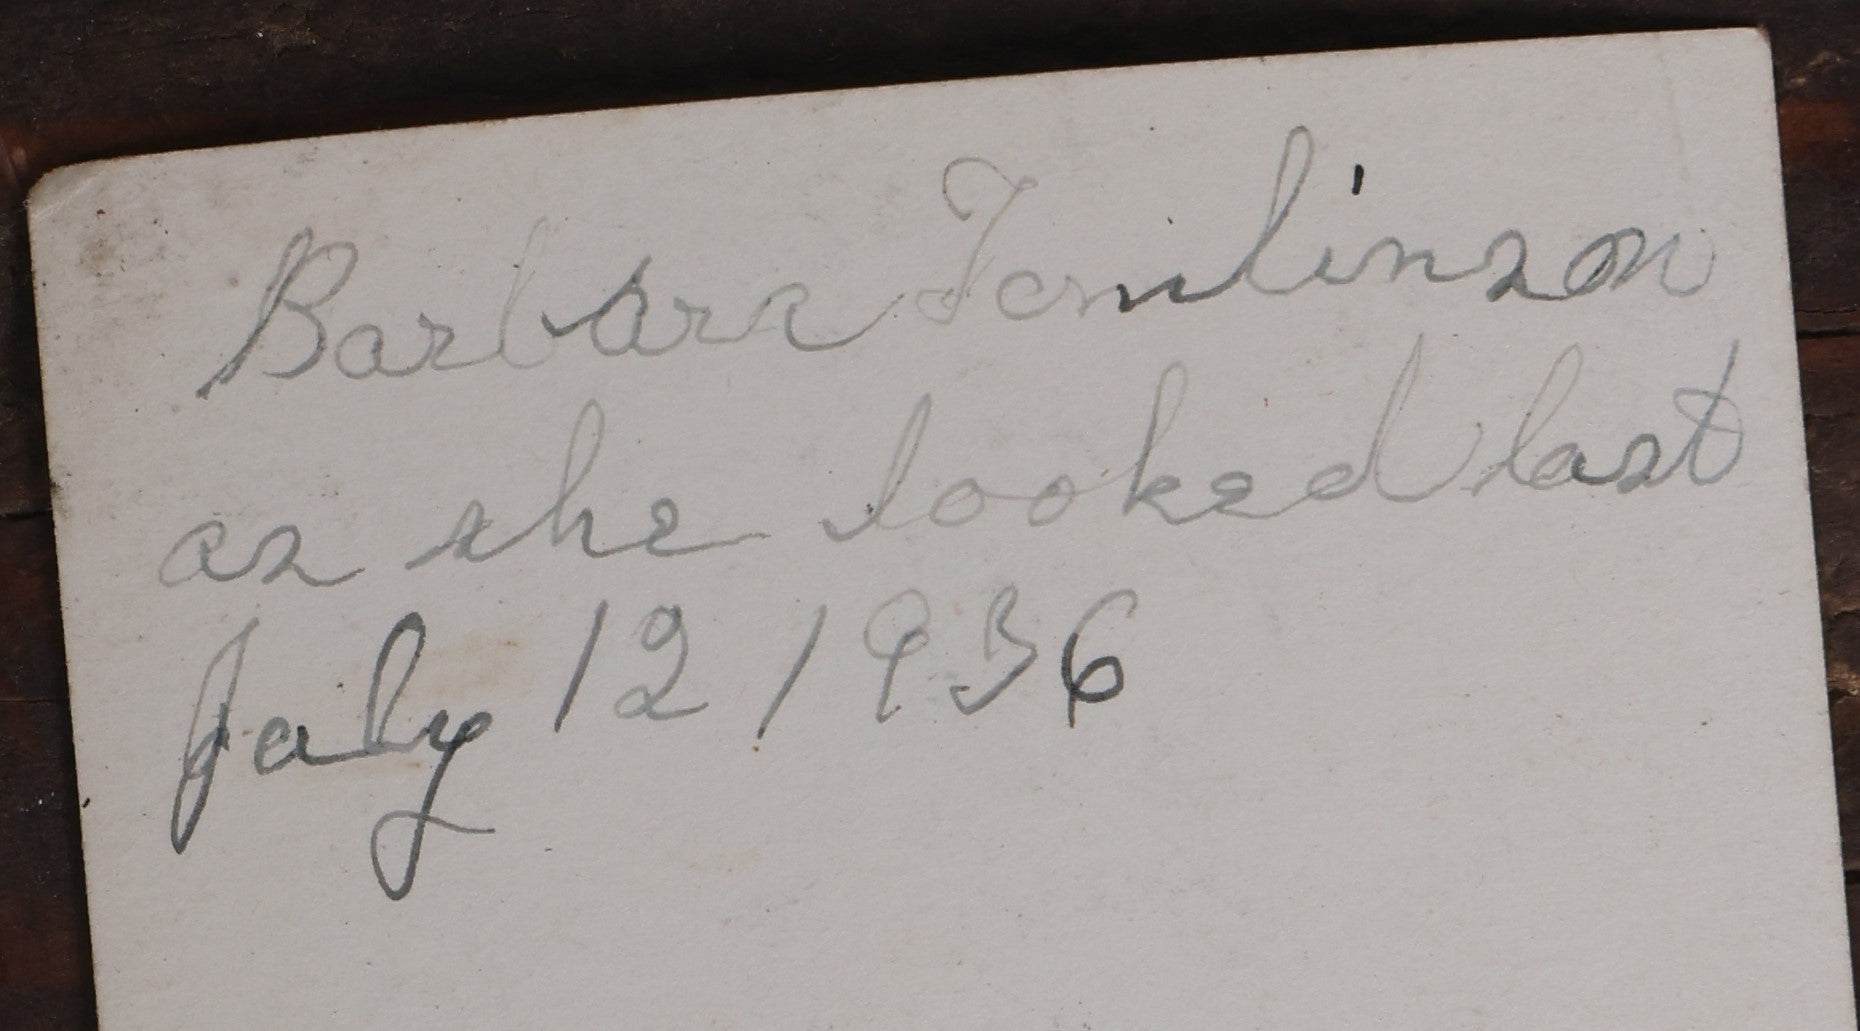 Barbara Tomlinson
as she looked last
July 12 1936